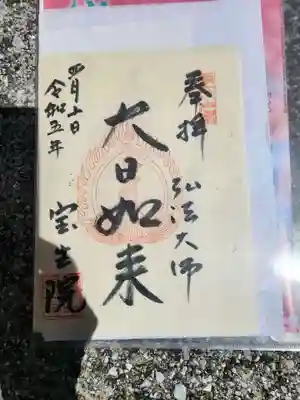 奉拝
弘法大師
大日如来
宝生院
令和五年
四月十日